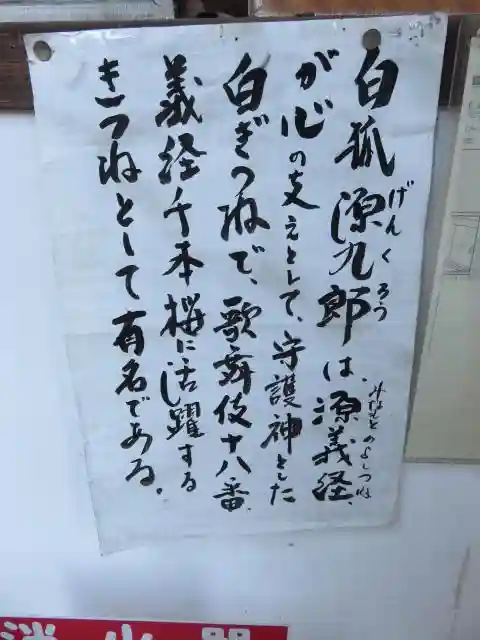 白狐源九郎は、源義経、
げんくろう
みなもとのよしつね
が心の支えとして、守護神とした
白ぎつねで、歌舞伎十八番、
義経千本桜に活躍する
きつねとして有名である。